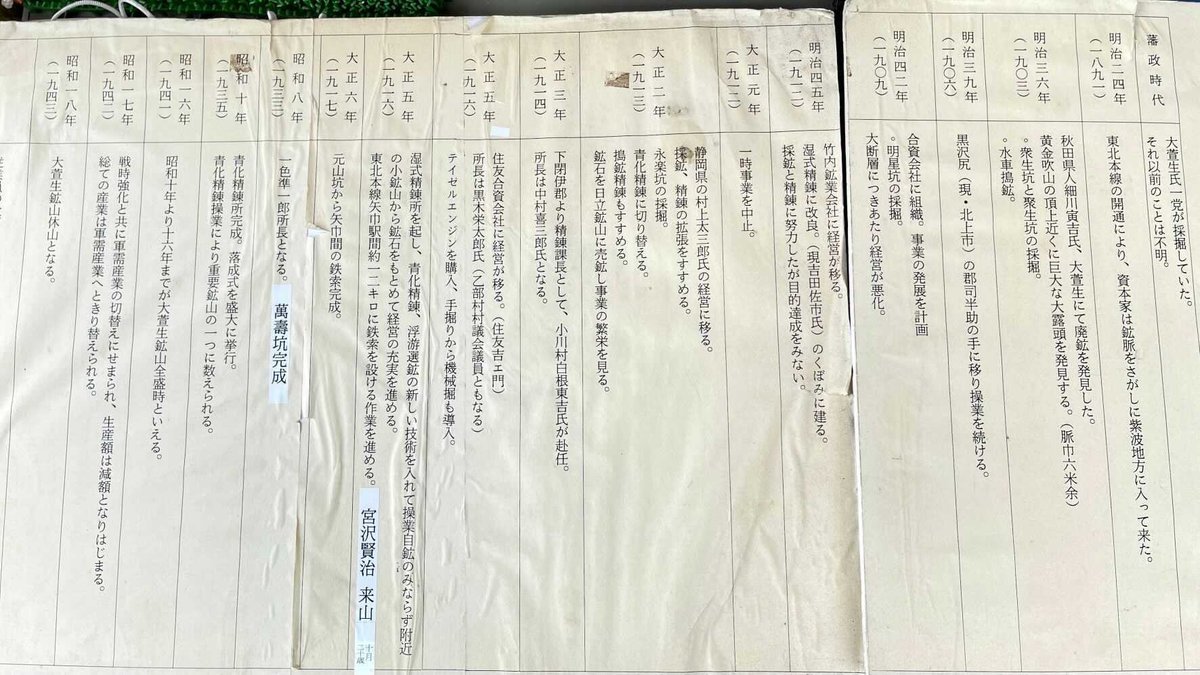 藩政時代
大萱生氏一党が採掘していた。
それ以前のことは不明。
明治二四年
（一八九一）
東北本線の開通により、資本家は鉱脈をさがしに紫波地方に入って来た。
明治三六年
（一九〇三）
秋田県人細川寅吉氏、大萱生にて廃鉱を発見した。
黄金吹山の頂上近くに巨大な大露頭を発見する。（脈巾六米余）
。衆生坑と聚生坑の採掘。
。水車搗鉱。
明治三九年
（一九〇六）
黒沢尻（現・北上市）の郡司半助の手に移り操業を続ける。
明治四二年
（一九〇九）
合資会社に組織。事業の発展を計画
。明星坑の採掘。
大断層につきあたり経営が悪化。
明治四五年
（一九一二）
竹内鉱業会社に経営が移る。
湿式精錬に改良。（現吉田佐市氏）のくぼみに建る。
採鉱と精錬に努力したが目的達成をみない。
大正元年
（一九一二）
一時事業を中止。
大正二年
（一九一三）
静岡県の村上太三郎氏の経営に移る。
採鉱、精錬の拡張をすすめる。
永楽坑の採掘。
青化精錬に切り替える。
搗鉱精錬もすすめる。
鉱石を日立鉱山に売鉱し事業の繁栄を見る。
大正三年
（一九一四）
下閉伊郡より精錬課長として、小川村白根東吉氏が赴任。
所長は中村喜三郎氏となる。
大正五年
（一九一六）
住友合資会社に経営が移る。（住友吉ェ門）
所長は黒木栄太郎氏（乙部村村議会議員ともなる）
テイゼルエンジンを購入、手掘りから機械掘も導入。
大正五年
（一九一六）
湿式精錬所を起し、青化精錬、浮游選鉱の新しい技術を入れて操業自鉱のみならず附近
の小鉱山から鉱石をもとめて経営の充実を進める。
東北本線矢巾駅間約一二キロに鉄索を設ける作業を進める。
宮沢賢治 来山
十月
二十歳
大正六年
（一九一七）
元山坑から矢巾間の鉄索完成。
昭和八年
（一九三三）
一色準一郎所長となる。
萬壽坑完成
昭和十年
（一九三五）
青化精錬所完成。落成式を盛大に挙行。
青化精錬操業により重要鉱山の一つに数えられる。
昭和一六年
（一九四一）
昭和十年より十六年までが大萱生鉱山全盛時といえる。
昭和一七年
（一九四二）
戦時強化と共に軍需産業の切替えにせまられ、生産額は減額となりはじまる。
総ての産業は軍需産業へときり替えられる。
昭和一八年
（一九四三）
大萱生鉱山休山となる。